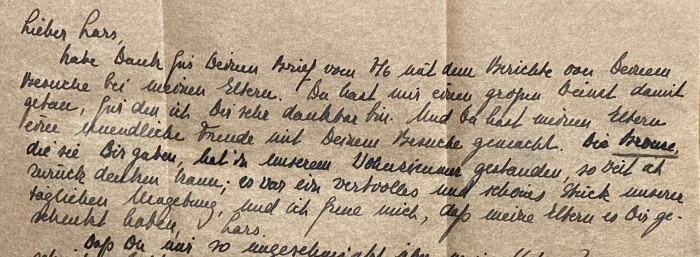 Lieber Lars,
habe Dank für Deinen Brief vom 7/6 mit dem Berichte von Deinem
Besuche bei meinen Eltern. Du hast mir einen großen Dienst damit
getan, für den ich Dir sehr dankbar bin. Und Du hast meinen Eltern
eine unendliche Freude mit Deinem Besuche gemacht. Die Bronze,
die sie Dir gaben, hat in unserem Wohnzimmer gestanden, so weit ich
zurück denken kann; es war ein wertvolles und schönes Stück unserer
täglichen Umgebung, und ich freue mich, daß meine Eltern es Dir ge-
schenkt haben, Lars.
Daß Du mir so ungeschminkt über